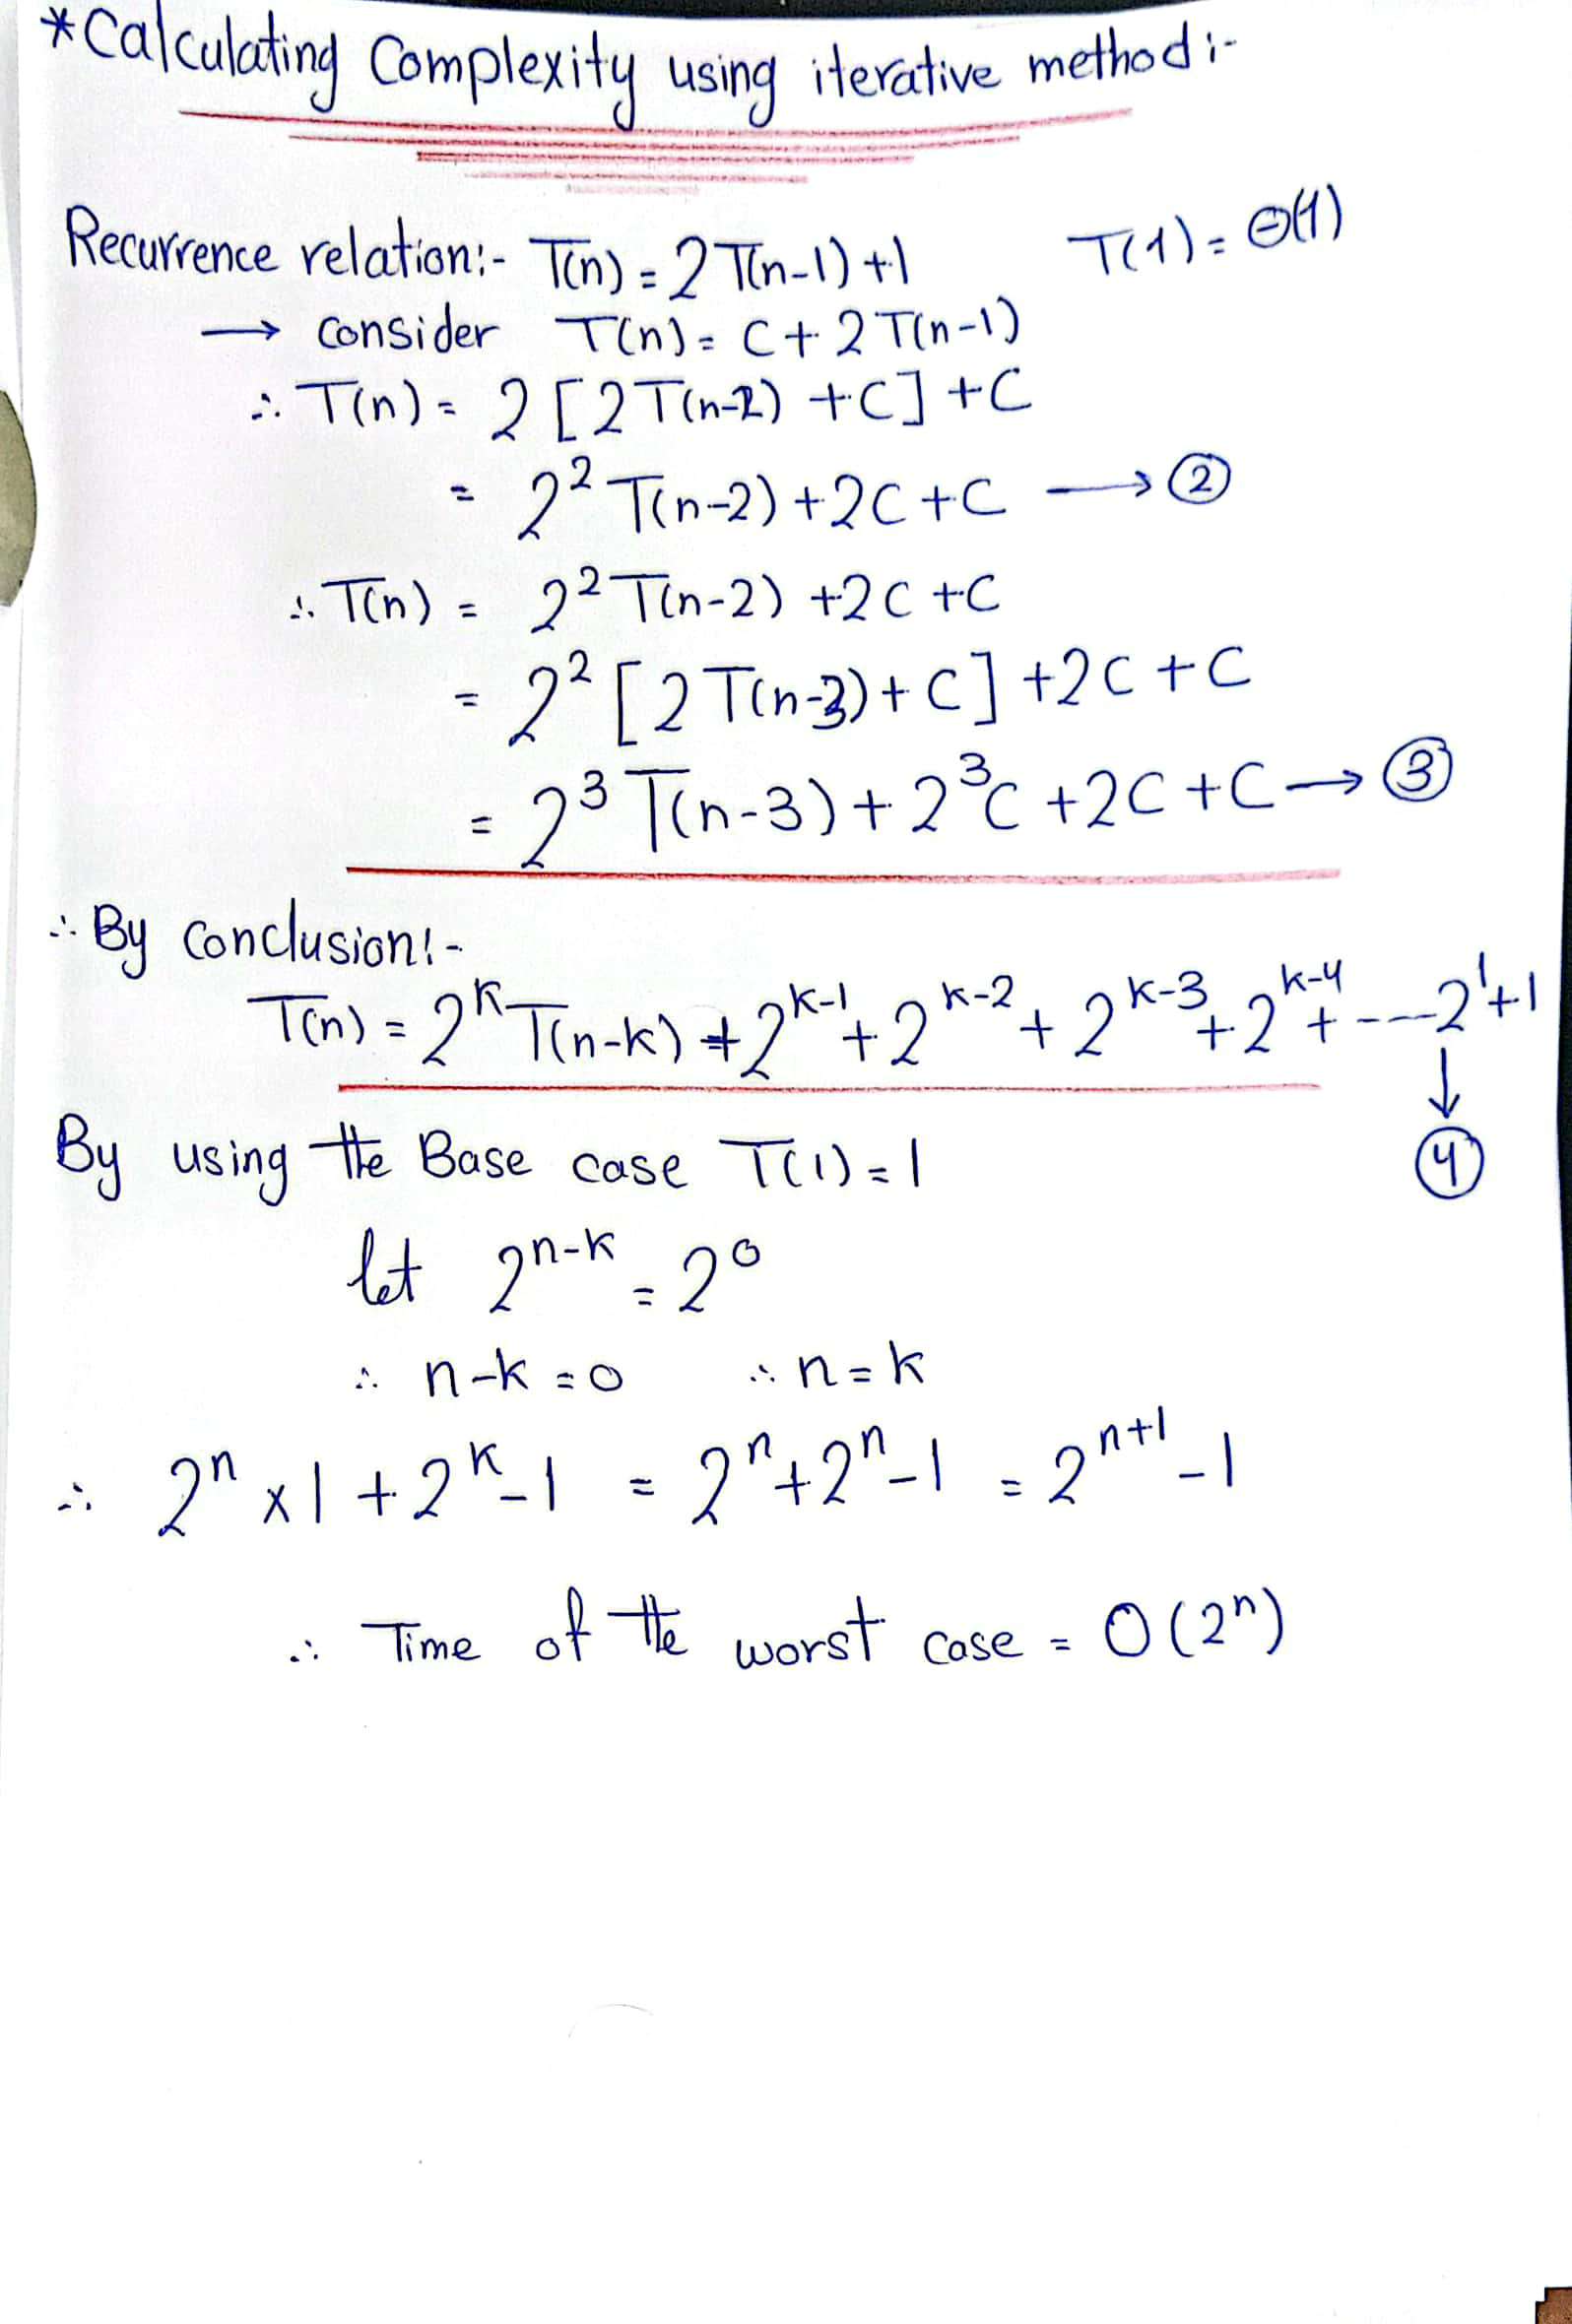 *Calculating Complexity using iterative method:-
Recurrence relation:- T(n) = 2T(n-1)+1 T(1) = Θ(1)
→ consider T(n) = C + 2T(n-1)
∴ T(n) = 2[2T(n-2) + C] + C
= 2² T(n-2) + 2C + C → ②
∴ T(n) = 2² T(n-2) + 2C + C
= 2² [2T(n-3) + C] + 2C + C
= 2³ T(n-3) + 2³C + 2C + C → ③
∴ By Conclusion:-
T(n) = 2^k T(n-k) + 2^(k-1) + 2^(k-2) + 2^(k-3) + 2^(k-4) + ---- 2^1 + 1
↓
④
By using the Base case T(1) = 1
let 2^(n-k) = 2^0
∴ n-k = 0 ∴ n = k
∴ 2^n x 1 + 2^k - 1 = 2^n + 2^n - 1 = 2^(n+1) - 1
∴ Time of the worst case = O(2^n)